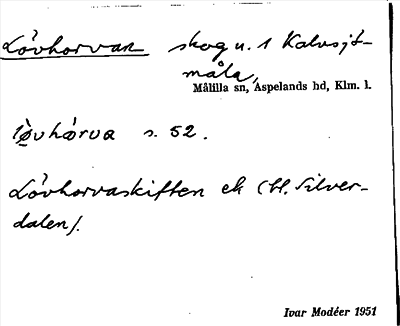 Lövhorvan skog u. 1 Kalvsjö-
måla,
Målilla sn, Aspelands hd, Klm. l.
lø̀vhòrva s. 52.
Lövhorvaskiften ek (bl. Silver-
dalen).
Ivar Modéer 1951